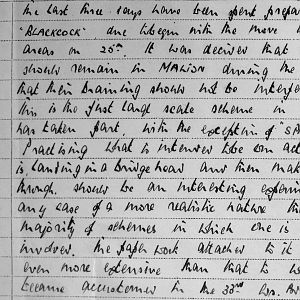 the last three days have been spent prepar
"BLACKCOCK" due to begin with the move
areas on 25th. It was decided that
should remain in MALTON during the
that their training should not be interfe
this is the first large scale scheme in
has taken part, with the exception of "SP
Practising what is intended to be our act
is, landing in a bridge head and then mak
through, should be an interesting experim
any case of a more realistic nature th
majority of schemes in which one is
involved. The paper work attached to it
even more extensive than that to w
became accustomed in the 33rd